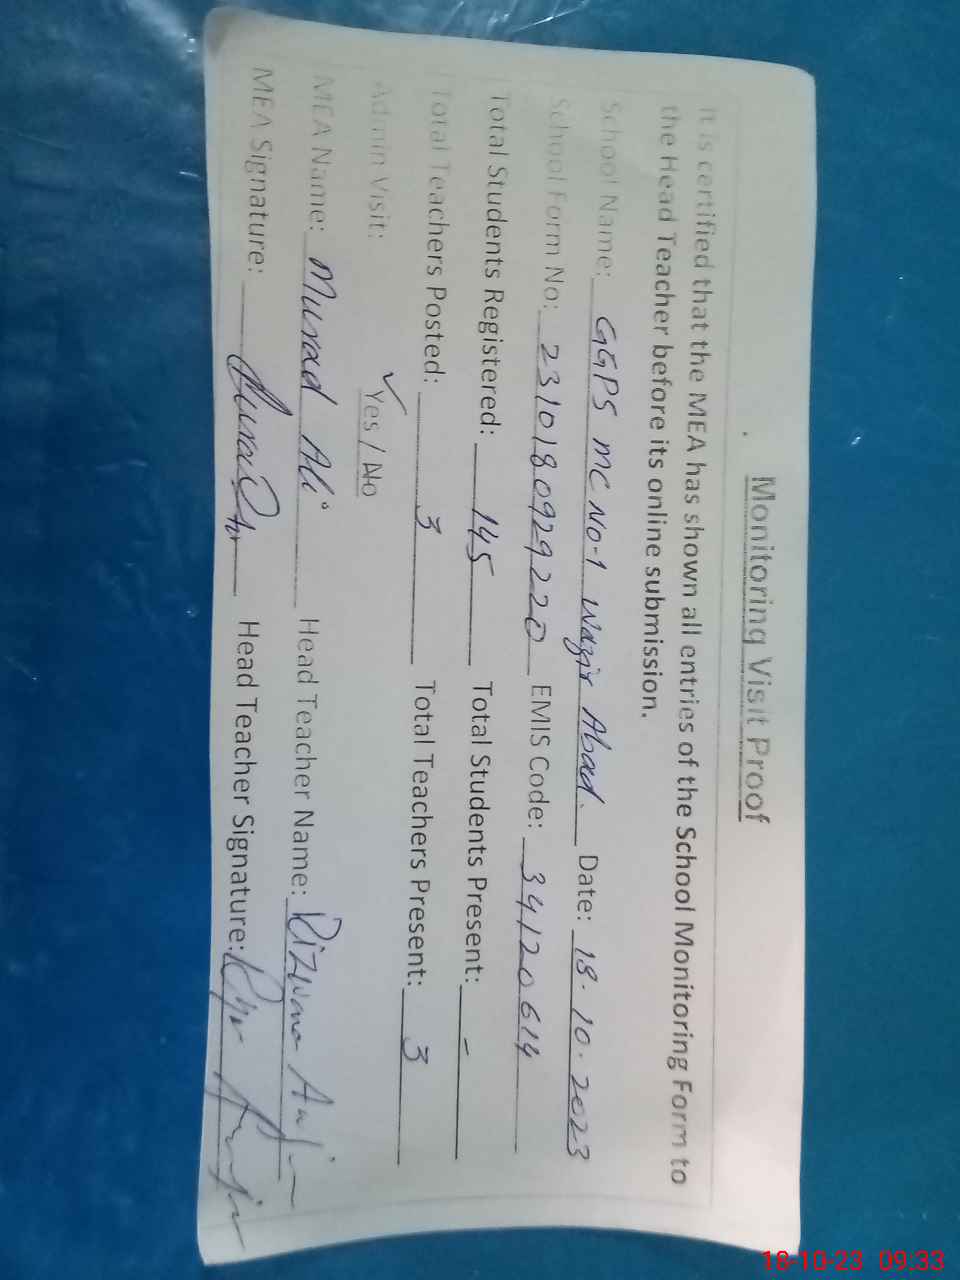 Monitoring Visit Proof
It is certified that the MEA has shown all entries of the School Monitoring Form to
the Head Teacher before its online submission.
School Name: GGPS MC No-1 Wazir Abad. Date: 18-10-2023
School Form No: 2310180929220 EMIS Code: 34120614
Total Students Registered: 145 Total Students Present: -
Total Teachers Posted: 3 Total Teachers Present: 3
Admin Visit: ✓Yes / No
MEA Name: Murad Ali Head Teacher Name: Rizwana Anjum
MEA Signature: Head Teacher Signature:
18-10-23 09:33